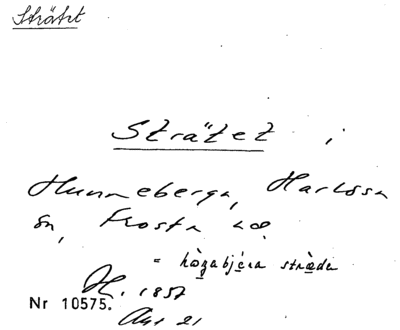 Strätet
Strätet i
Hunneberga, Harlösa
sn, Frosta hd.
= hògabjèra stràda
H. 1857
Nr 10575.
21